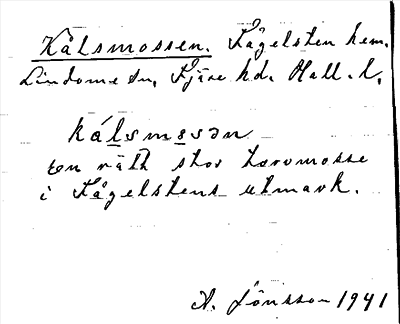 Kålsmossen. Fågelsten hem.
Lindome sn, Fjäre hd. Hall. l.
kálsmosən
en rätt stor torvmosse
i Fågelstens utmark.
A. Jönsson 1941